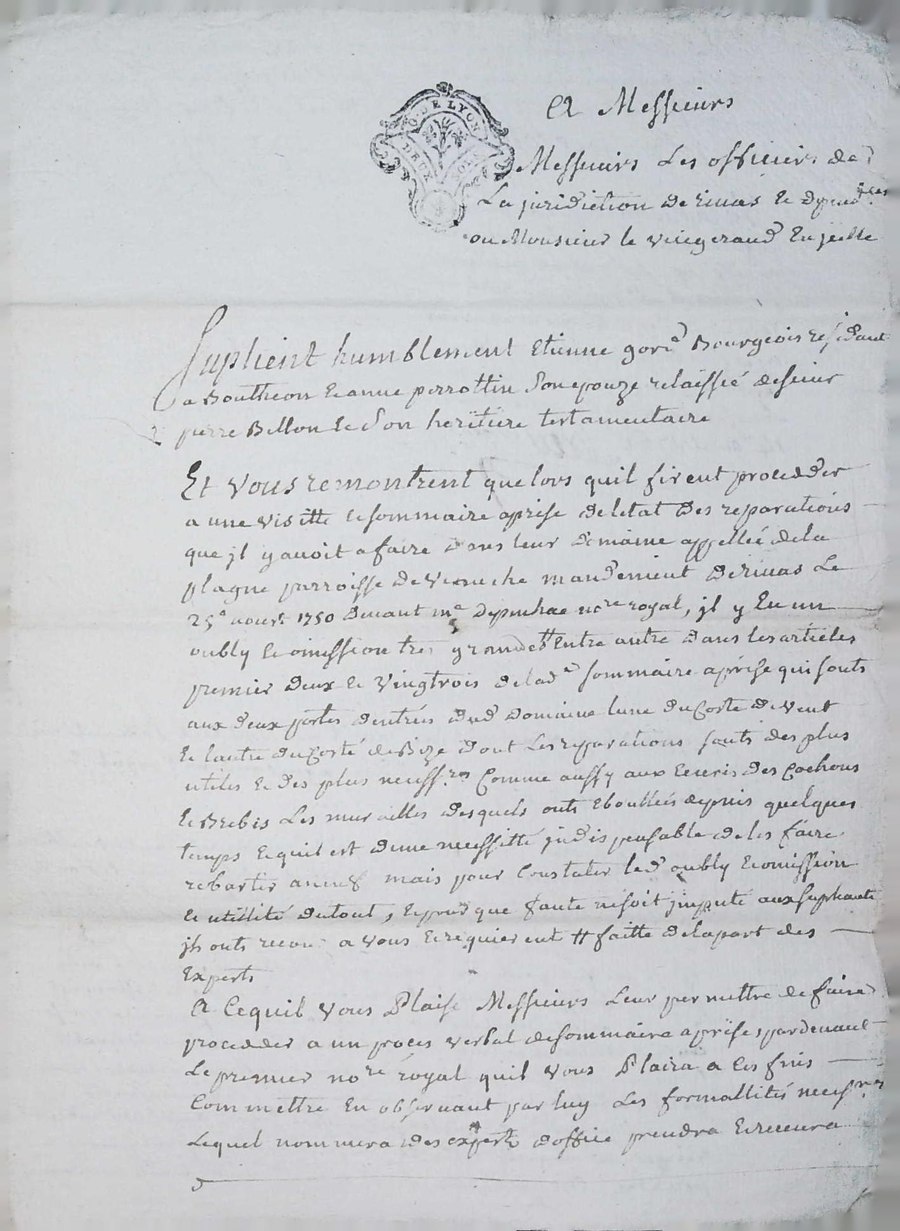 G. DE LYON
DEUX SOLS
A Messieurs
Messieurs Les officiers de
La juridiction de rivas &
ou Monsieur le vicegerand En jcelle
Suplient humblement Etienne Bourgeois residant
a Boutheon & anne perrottin Son epouze relaissée de sieur
pierre Billon & Son heritiere testamentaire
Et Vous remontrent que lors quil firent proceder
a une visitte & sommaire aprise de letat des reparations
que jl y avoit a faire dans leur domaine appellée de la
plagne parroisse de mandement de rivas Le
25e aoust 1750 devant me nore royal, jl y Eu un
oubly & omission tres grande # Entre autre dans les articles
premier deux & vingtrois de lade sommaire aprise qui sonts
aux deux portes dentrés dud domaine lune du Costé de vent
& lautre du Costé de Bize dont Les reparations sonts des plus
utiles & des plus necessres Comme aussy aux Ecuris des Cochons
& Brebis Les murailles desquels onts Eboullés depuis quelques
temps & quil est dune necessitté jndispensable de les faire
rebattir a neuf mais pour Constater led oubly & omission
& utillité du tout, & que faute ne soit jmputé aux supliants
jls onts recours a vous & requierent # faitte de la part des
Experts
A Ce quil Vous Plaise Messieurs Leur permettre de faire
proceder a un proces verbal de sommaire aprise, pardevant
Le premier nore royal quil vous Plaira a Ces fins
Commettre En observant par luy Les formallités necessres
Lequel nommera des experts doffice prendra & recevra